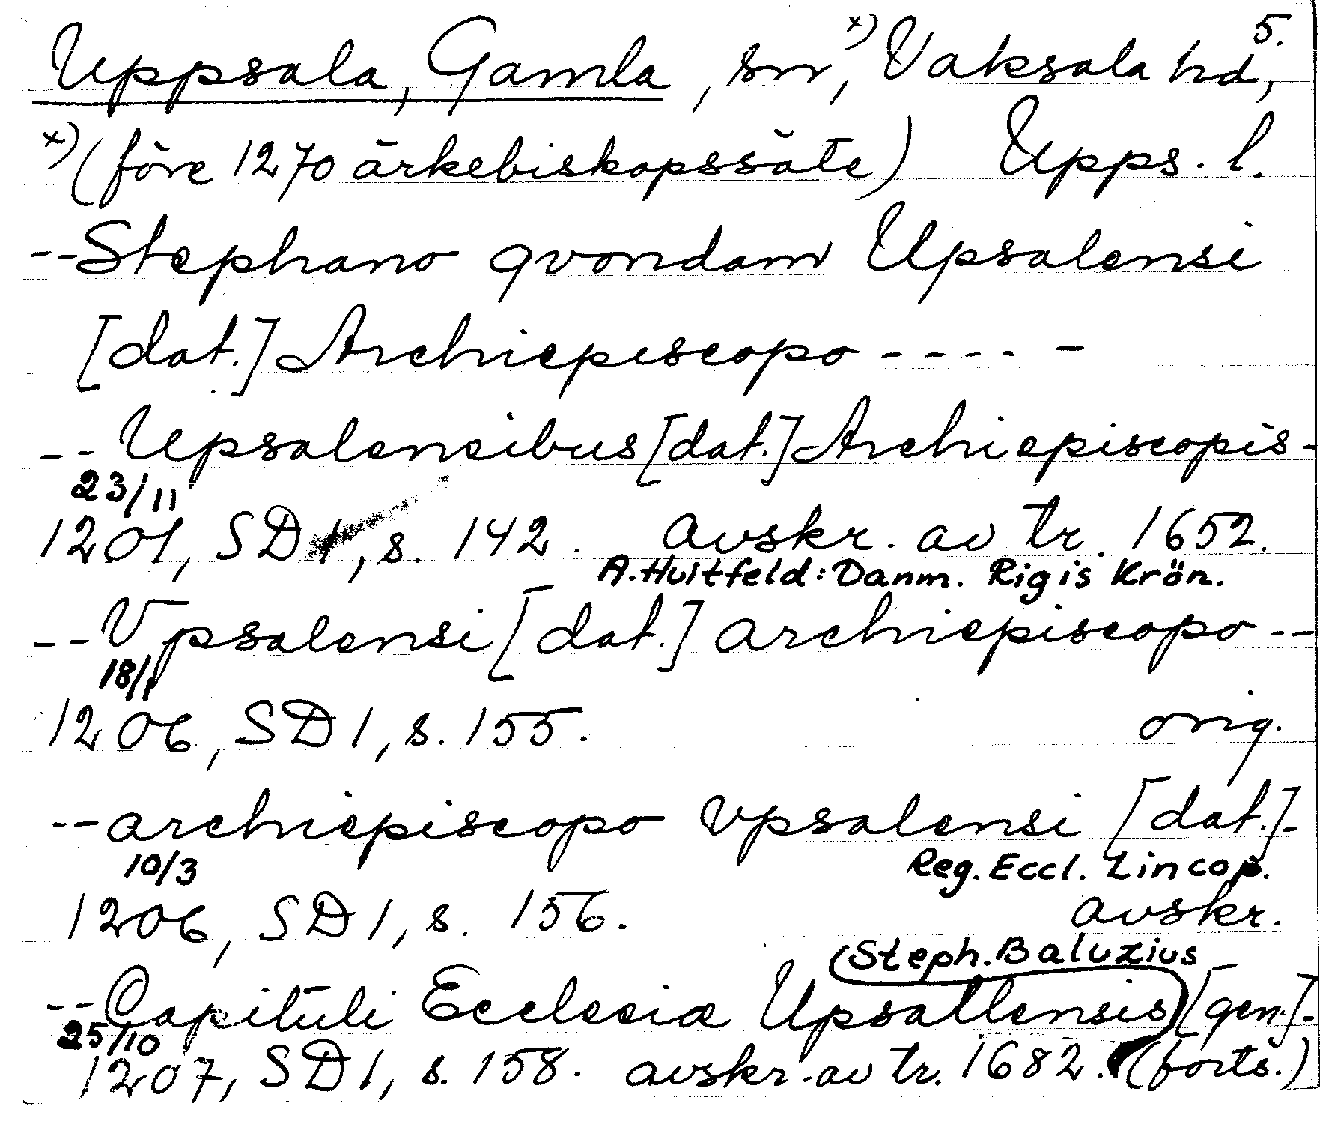 5.
Uppsala, Gamla, sn x), Vaksala hd,
x) (före 1270 ärkebiskopssäte) Upps. l.
-- Stephano qvondam Upsalensi
[dat.] Archiepiscopo - - - - -
-- Upsalensibus [dat.] Archiepiscopis -
23/11
1201, SD 1, s. 142. avskr. av tr. 1652.
A. Huitfeld: Danm. Rigis Krön.
-- Vpsalensi [dat.] archiepiscopo --
18/1
1206, SD 1, s. 155. orig.
-- archiepiscopo vpsalensi [dat.] -
10/3 Reg. Eccl. Lincop.
1206, SD 1, s. 156. avskr.
(Steph. Baluzius
-- Capituli Ecclesiæ Upsallensis) [gen.] -
25/10
1207, SD 1, s. 158. avskr. av tr. 1682. (forts.)